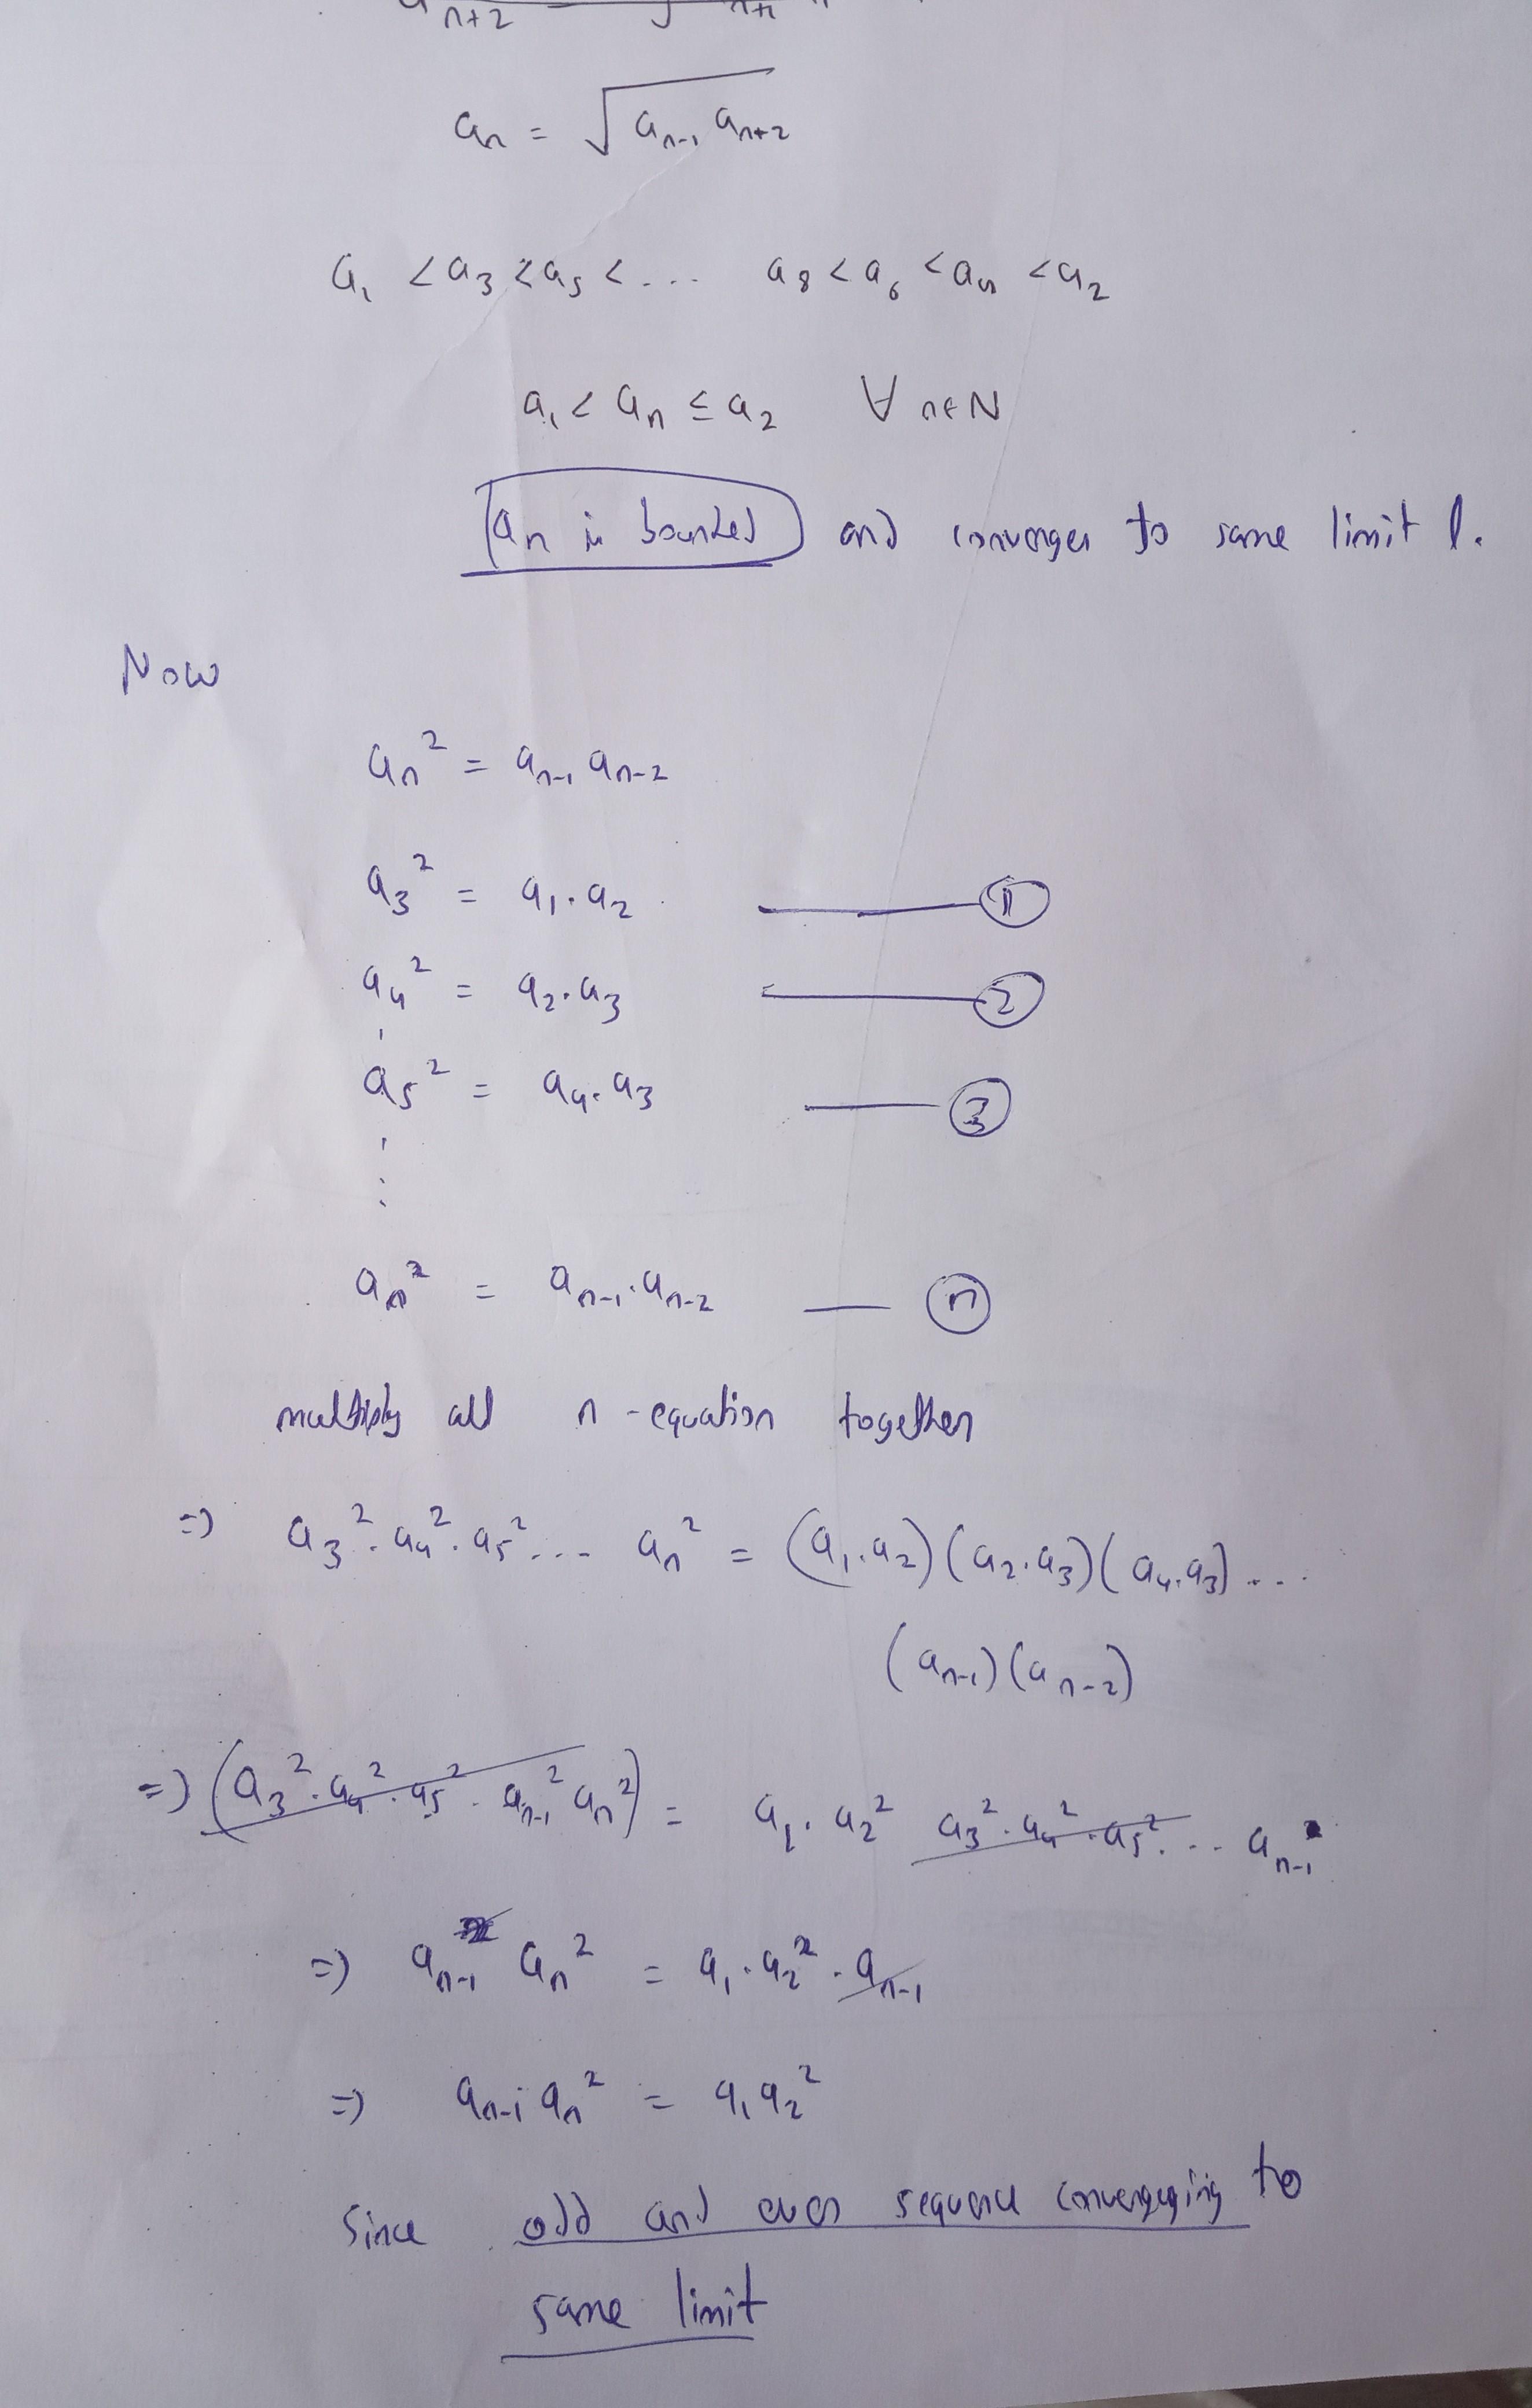 n+2 n+1
an = √ an-1 an+2
a1 < a3 < a5 < ... a8 < a6 < a4 < a2
a1 < an ≤ a2 ∀ n∈N
an is bounded and converges to same limit l.
Now
an² = an-1 an-2
a3² = a1.a2 ——— ①
a4² = a2.a3 ——— ②
a5² = a4.a3 ——— ③
⋮
an² = an-1.an-2 — ⓝ
multiply all n-equation together
=> a3².a4².a5²... an² = (a1.a2)(a2.a3)(a4.a3)...
(an-1)(an-2)
=> (a3².a4².a5². an-1² an²) = a1.a2² a3².a4².a5²... an-1
=> an-1 an² = a1.a2².an-1
=> an-1 an² = a1 a2²
Since odd and even sequence convergging to
same limit